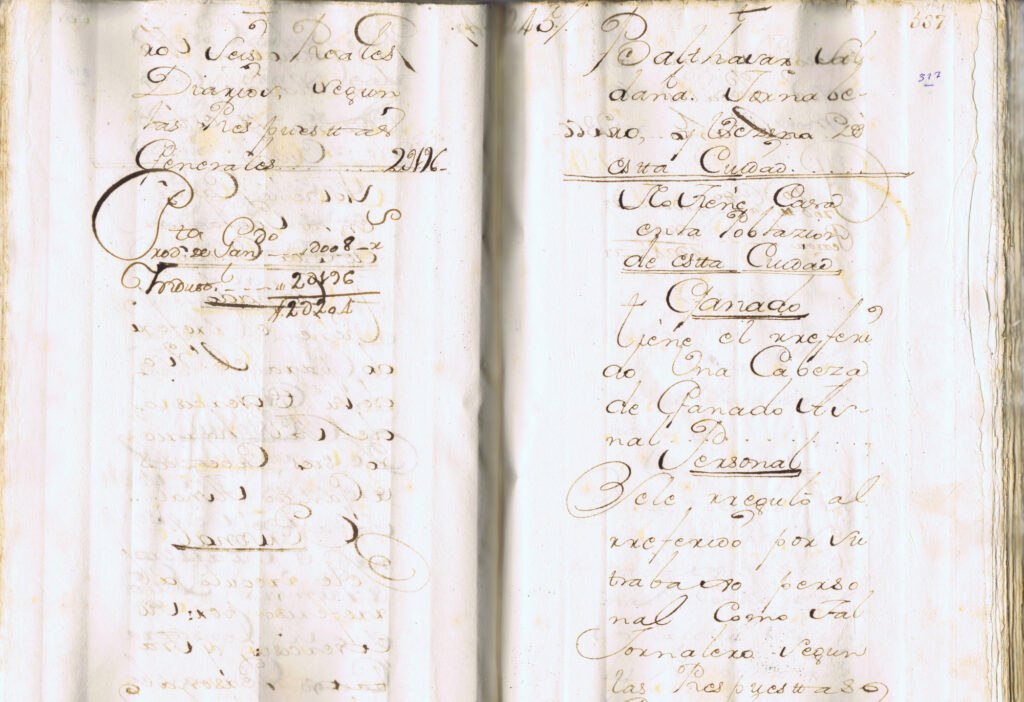 ro, Seis Reales
Diarios, Segun
las Respuesttas
Generales ........ 2d196-
Prod. de Gan.do ---- 1d008-
Yndustr. ---- 2d196
2d204
243
Balthasar Sal
dana. Jornale-
ro, y Vezino de
estta Ciudad ....
No tiene Casa
en la Poblazion
de estta Ciudad
Ganado
Tiene el rreferi
do Una Cabeza
de Ganado As-
nal ........
Personal
Se le rregulò al
rreferido por su
trabaxo perso
nal Como tal
Jornalero Segun
las Respuesttas G
337
317